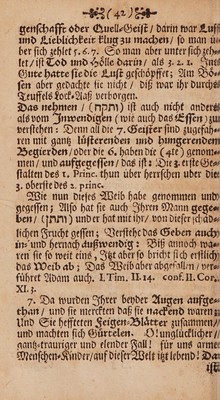 (42)
genschafft oder Quell-Geist / darin war Lust
und Lieblichkeit klug zu machen / so man u-
ber sich zehlet 5. 6. 7. So man aber unter sich zeh-
let / ist Tod und Hölle darin / als 3. 2. 1. Inits
Gute hatte sie die Lust geschöpffet; Am Bö-
sen aber gedachte sie nicht / diß war ihr durchs
Teuffels Lock-Aaß verborgen.
Das nehmen / (ותקח) ist auch nicht anders
als vom Inwendigen (wie auch das Essen) zu
verstehen: Denn all die 7. Geister sind zugefah-
ren mit gantz lüsterenden und hungerendem
Begierden / oder die 6. haben die (4te) genom-
men / und aufgegessen / das ist: Die 3. erste Ge-
stalten des 1. Princ. thun über herrschen uber die
3. oberste des 2. princ.
Wie nun dieses Weib habe genommen und
gegessen; Also hat sie auch Ihren Mann gege-
ben / (ותתן) und er hat mit ihr / von dieser schäd-
lichen Frucht gessen; Verstehe das Geben auch
in- und hernach außwendig: Biß annoch wa-
ren sie so weit eins / Itzt aber so bricht es erstlich
das Weib ab; Das Weib aber abgefallen / ver-
führet Adam auch. I. Tim. II. 14. conf. II. Cor.
XI. 3.
7. Da wurden Ihrer beyder Augen aufge-
than / und sie merckten daß sie nackend waren
Und Sie heffteten Feigen-Blätter zusammen /
und machten sich Gürtelen. O! unglücklicher /
gantz-trauriger und elender Fall! für uns arme
Menschen-Kinder / auf dieser Welt itzt lebend! Da